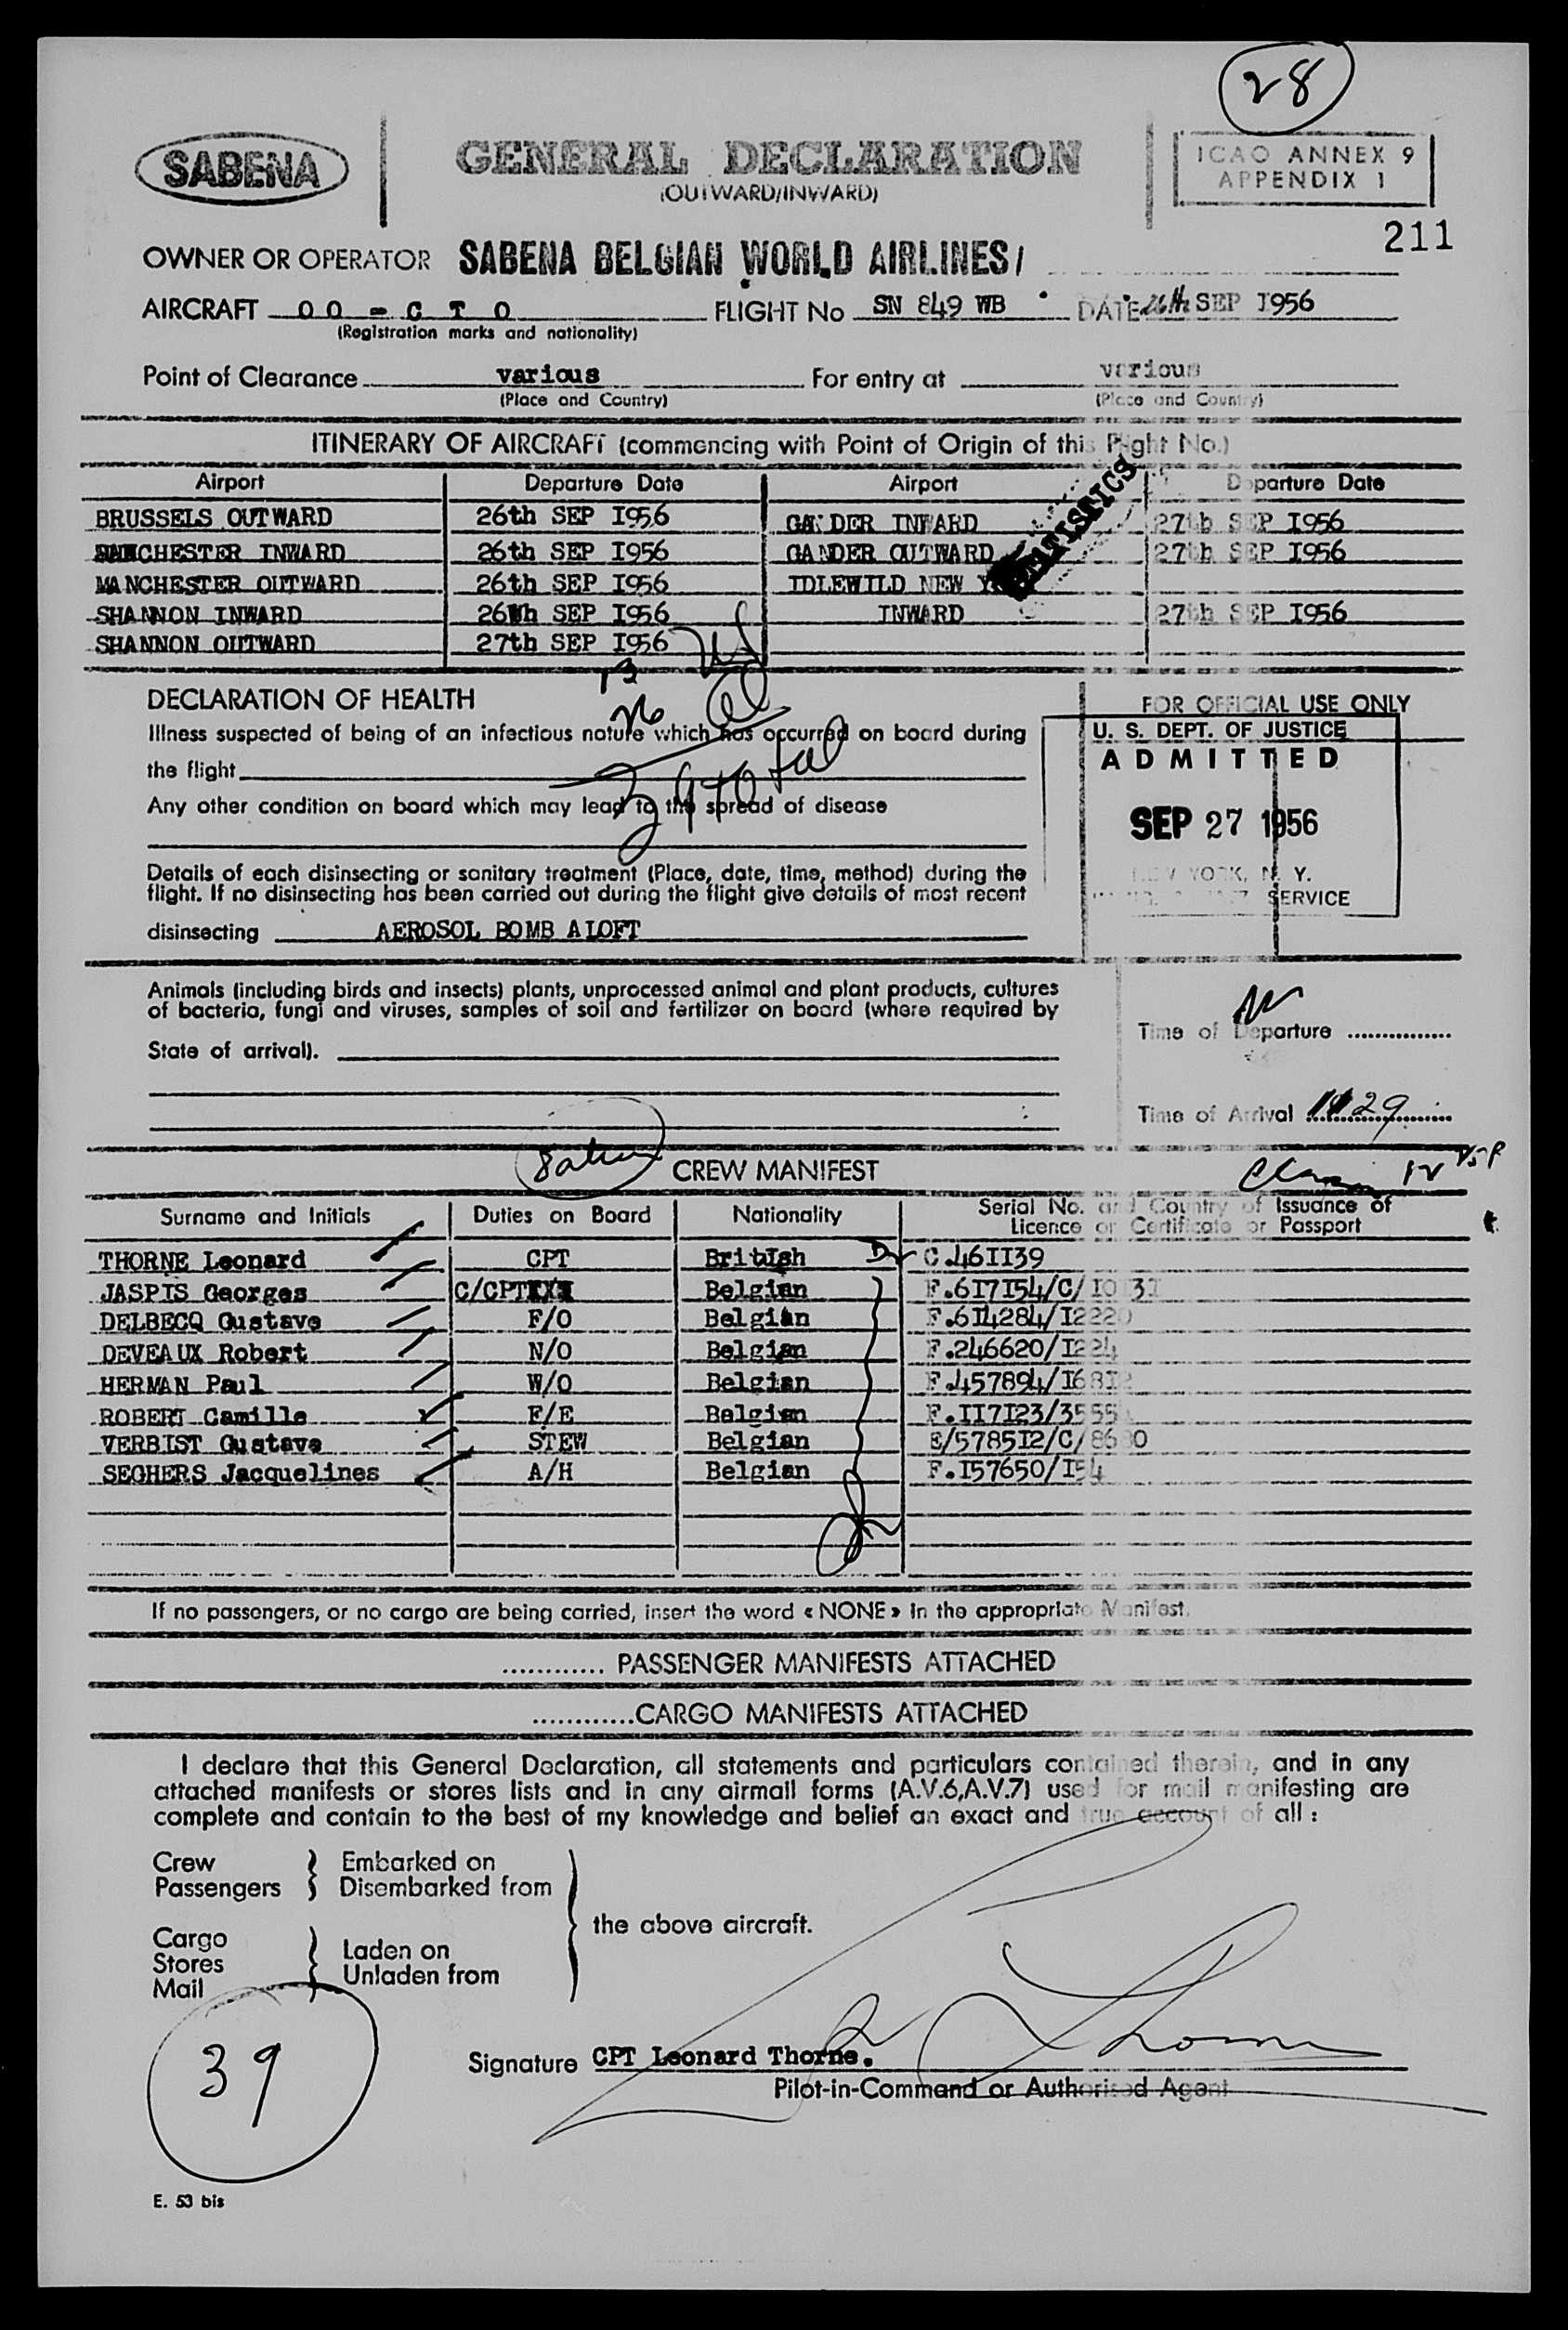 28
SABENA
GENERAL DECLARATION
(OUTWARD/INWARD)
ICAO ANNEX 9
APPENDIX 1
211
OWNER OR OPERATOR SABENA BELGIAN WORLD AIRLINES/
AIRCRAFT OO - C T O FLIGHT No SN 849 WB DATE 26th SEP I956
(Registration marks and nationality)
Point of Clearance various For entry at various
(Place and Country) (Place and Country)
ITINERARY OF AIRCRAFT (commencing with Point of Origin of this Flight No.)
Airport Departure Date Airport Departure Date
BRUSSELS OUTWARD 26th SEP I956 GANDER INWARD 27th SEP I956
MANCHESTER INWARD 26th SEP I956 GANDER OUTWARD 27th SEP I956
MANCHESTER OUTWARD 26th SEP I956 IDLEWILD NEW
SHANNON INWARD 26th SEP I956 INWARD 27th SEP I956
SHANNON OUTWARD 27th SEP I956
STATISTICS
13
26
39 total
DECLARATION OF HEALTH
Illness suspected of being of an infectious nature which has occurred on board during
the flight
Any other condition on board which may lead to the spread of disease
Details of each disinsecting or sanitary treatment (Place, date, time, method) during the
flight. If no disinsecting has been carried out during the flight give details of most recent
disinsecting AEROSOL BOMB ALOFT
FOR OFFICIAL USE ONLY
U. S. DEPT. OF JUSTICE
ADMITTED
SEP 27 1956
NEW YORK, N. Y.
SERVICE
Animals (including birds and insects) plants, unprocessed animal and plant products, cultures
of bacteria, fungi and viruses, samples of soil and fertilizer on board (where required by
State of arrival).
Time of Departure
Time of Arrival 1129
CREW MANIFEST
Surname and Initials Duties on Board Nationality Serial No. and Country of Issuance of
Licence or Certificate or Passport
THORNE Leonard CPT BritIsh C.46II39
JASPIS Georges C/CPT Belgian F.6I7I54/C/
DELBECQ Gustave F/O Belgian F.6I4284/I2220
DEVEAUX Robert N/O Belgian F.246620/I224
HERMAN Paul W/O Belgian F.457894/I68I2
ROBERT Camille F/E Belgian F.II7I23/3555
VERBIST Gustave STEW Belgian E/5785I2/C/
SEGHERS Jacquelines A/H Belgian F.I57650/I54
If no passengers, or no cargo are being carried, insert the word « NONE » in the appropriate Manifest.
............ PASSENGER MANIFESTS ATTACHED
............CARGO MANIFESTS ATTACHED
I declare that this General Declaration, all statements and particulars contained therein, and in any
attached manifests or stores lists and in any airmail forms (A.V.6,A.V.7) used for mail manifesting are
complete and contain to the best of my knowledge and belief an exact and true account of all :
Crew Embarked on
Passengers Disembarked from
the above aircraft.
Cargo
Stores Laden on
Mail Unladen from
39
Signature CPT Leonard Thorne.
Pilot-in-Command or Authorised Agent
E. 53 bis